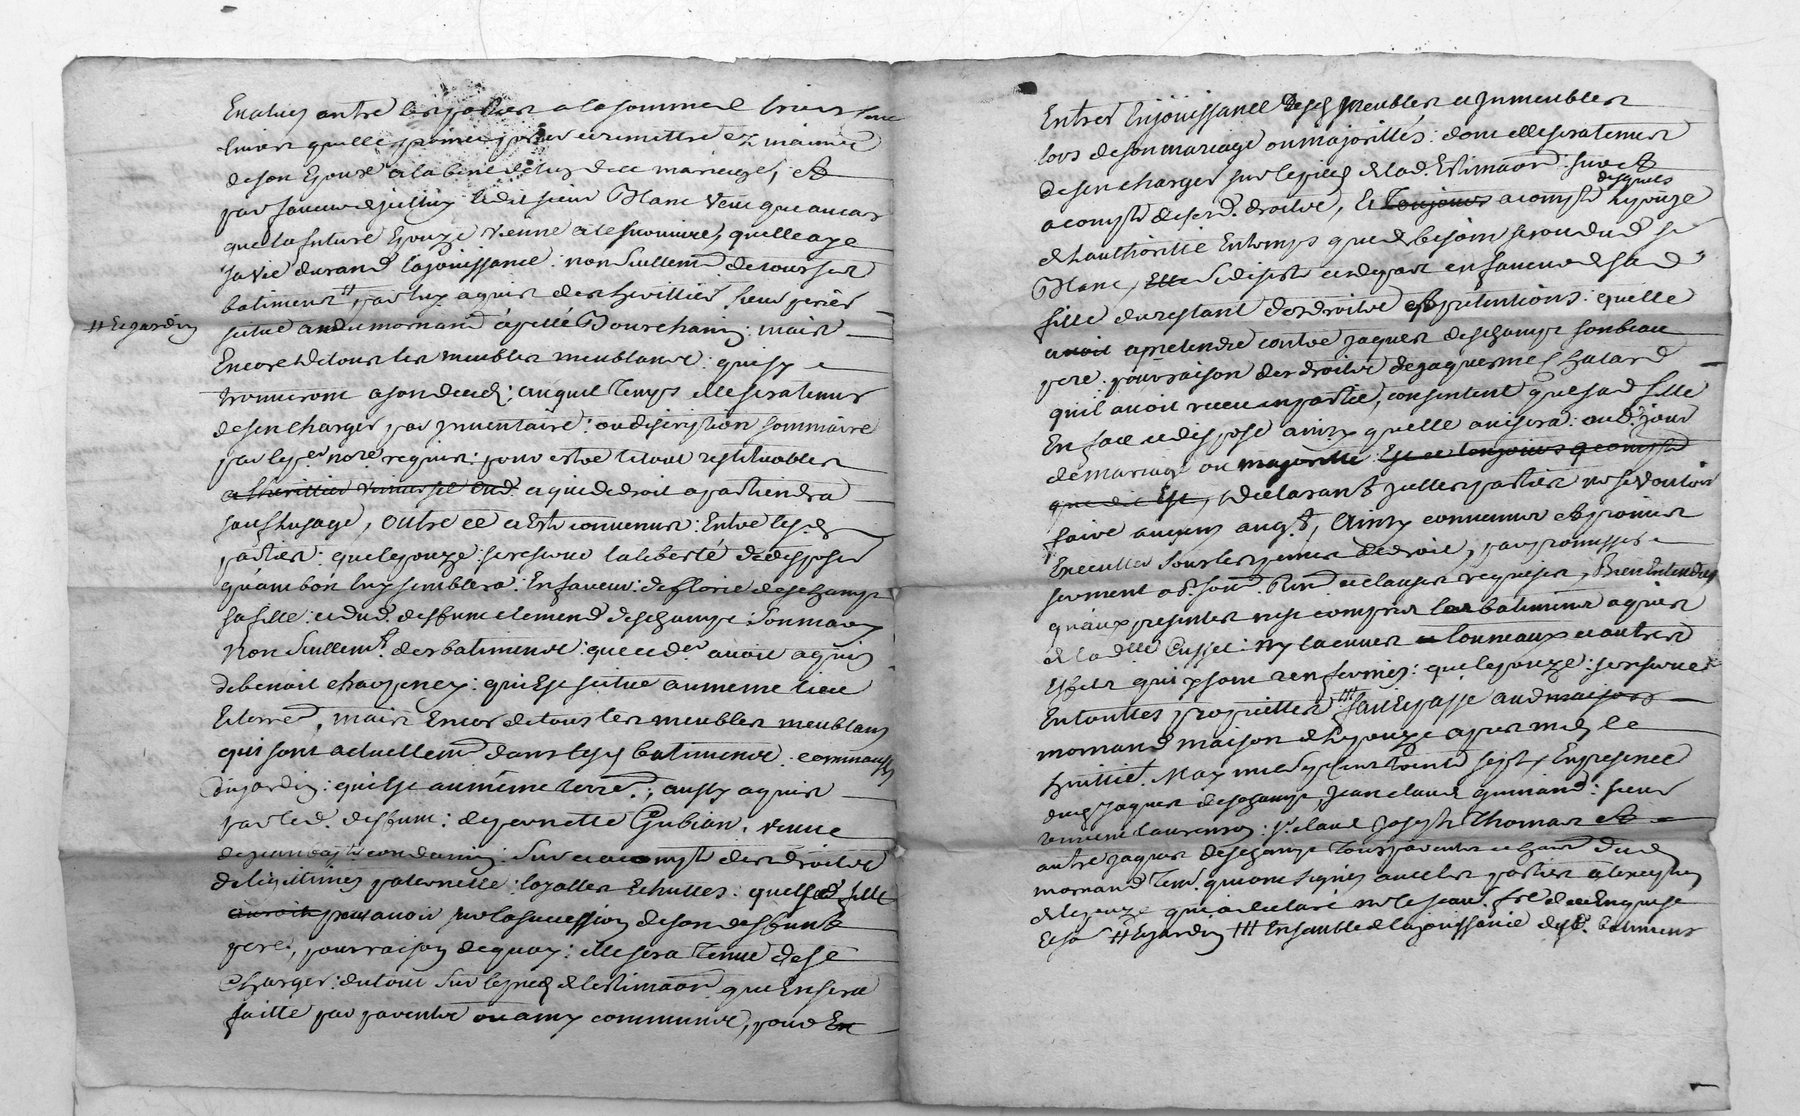 Evalués entre les parties a la somme de
livres quelle promis porter et remettre es mains
de son Epoux a la benediction de ce mariage, et
par faveur dejcelluy ledit sieur Blanc veut que au cas
que la future Epouze vienne a le survivre, quelle aye
sa vie durand la jouissance : non seullemt de tous les
batiments # par luy aquis des heritiers sieur
situé aud mornand apellé Bourchanin : mais
# Et jardin
Encore de tous les meubles meublants : qui sy
trouveront a son deces ; auquel temps elle sera tenue
de sen charger par jnventaire : ou discription sommaire
par les nore requis : pour estre le tout restituables
a lheritier universel dud. a qui de droit apartiendra
sauf lusage, outre ce a Esté convenus : Entre lesd
parties : que lepouze se reserve la liberté de disposer
quam bon luy semblera : En faveur : de florie deschamps
sa fille : et dud. deffunt clement deschamps : son mary
Non seullemt. des batiments : que ced.r avoit aquis
de benoit chavgney : qui Est situé au meme lieu
Et terre, mais Encor de tous les meubles meublans
qui sont actuellemt dans lesd batiments : comm aussy
du jardin : qui Est au même terre. ; aussy aquis
par led. deffunt : de pernette Gubian, veuve
de jean : Sur et acompte des droits
de legitimes paternelle : layalles Echuttes : que sad fille
auroit peut avoir sur la succession de son deffunt
pere, pour raison de quoy : elle sera tenue de se
charger : du tout sur le pied de lestimaon que En sera
faitte par parents ou amy communs, pour En
Entrer En jouissance desd meubles et jnmeubles
lors de son mariage ou majorittés : dont elle sera tenue
de sen charger sur le pied de lad. Estimaon : sur et
desquels
acompte desesd. droits, Et toujours acompte Lepouze
de lauthorité En temps que de besoin seroit dud sr
Blanc, Elle se desiste et depart en faveur de sad
fille du restant des droits et pretentions : quelle
avoit a pretendre contre jaques deschamps son beau
pere : pour raison des droits de jaquesme Chatard
quil avoit receu en partie, consentent que sad fille
En face et dispose ainsy quelle avisera : aud. jour
de mariage ou majoritté Est et toujours acompte
que dit Est, declarant jcelles parties ne se vouloir
faire aucuns augt, Ainsy convenus et promis
Executter sous les peines de droit, par promesses
serment obon. soun. Ren. et clauses requises, Bien Entendus
quaux presentes nest compris les batiments aquis
de lad.lle Cusset : ny la cuves et tonneaux et autres
Effets qui y sont renfermés : que lepouze : se reserve
En touttes proprietter ### fait Et passé aud maison
mornand maison de lepouze apres midy le
huittie. May mil sept cent trente sept, En presence
dud. jaques deschamps, jean claude guinand : sieur
laurenson : sr. claude joseph Thomas et
autre jaques deschamps tous parents et hab. dud.
mornand Tem. qui ont signés avec les parties a lexeption
de lepouze qui a declaré ne le scavoir. fre de ce Enquise
Et so # Et jardin ### Ensemble de la jouissance desd. batiments